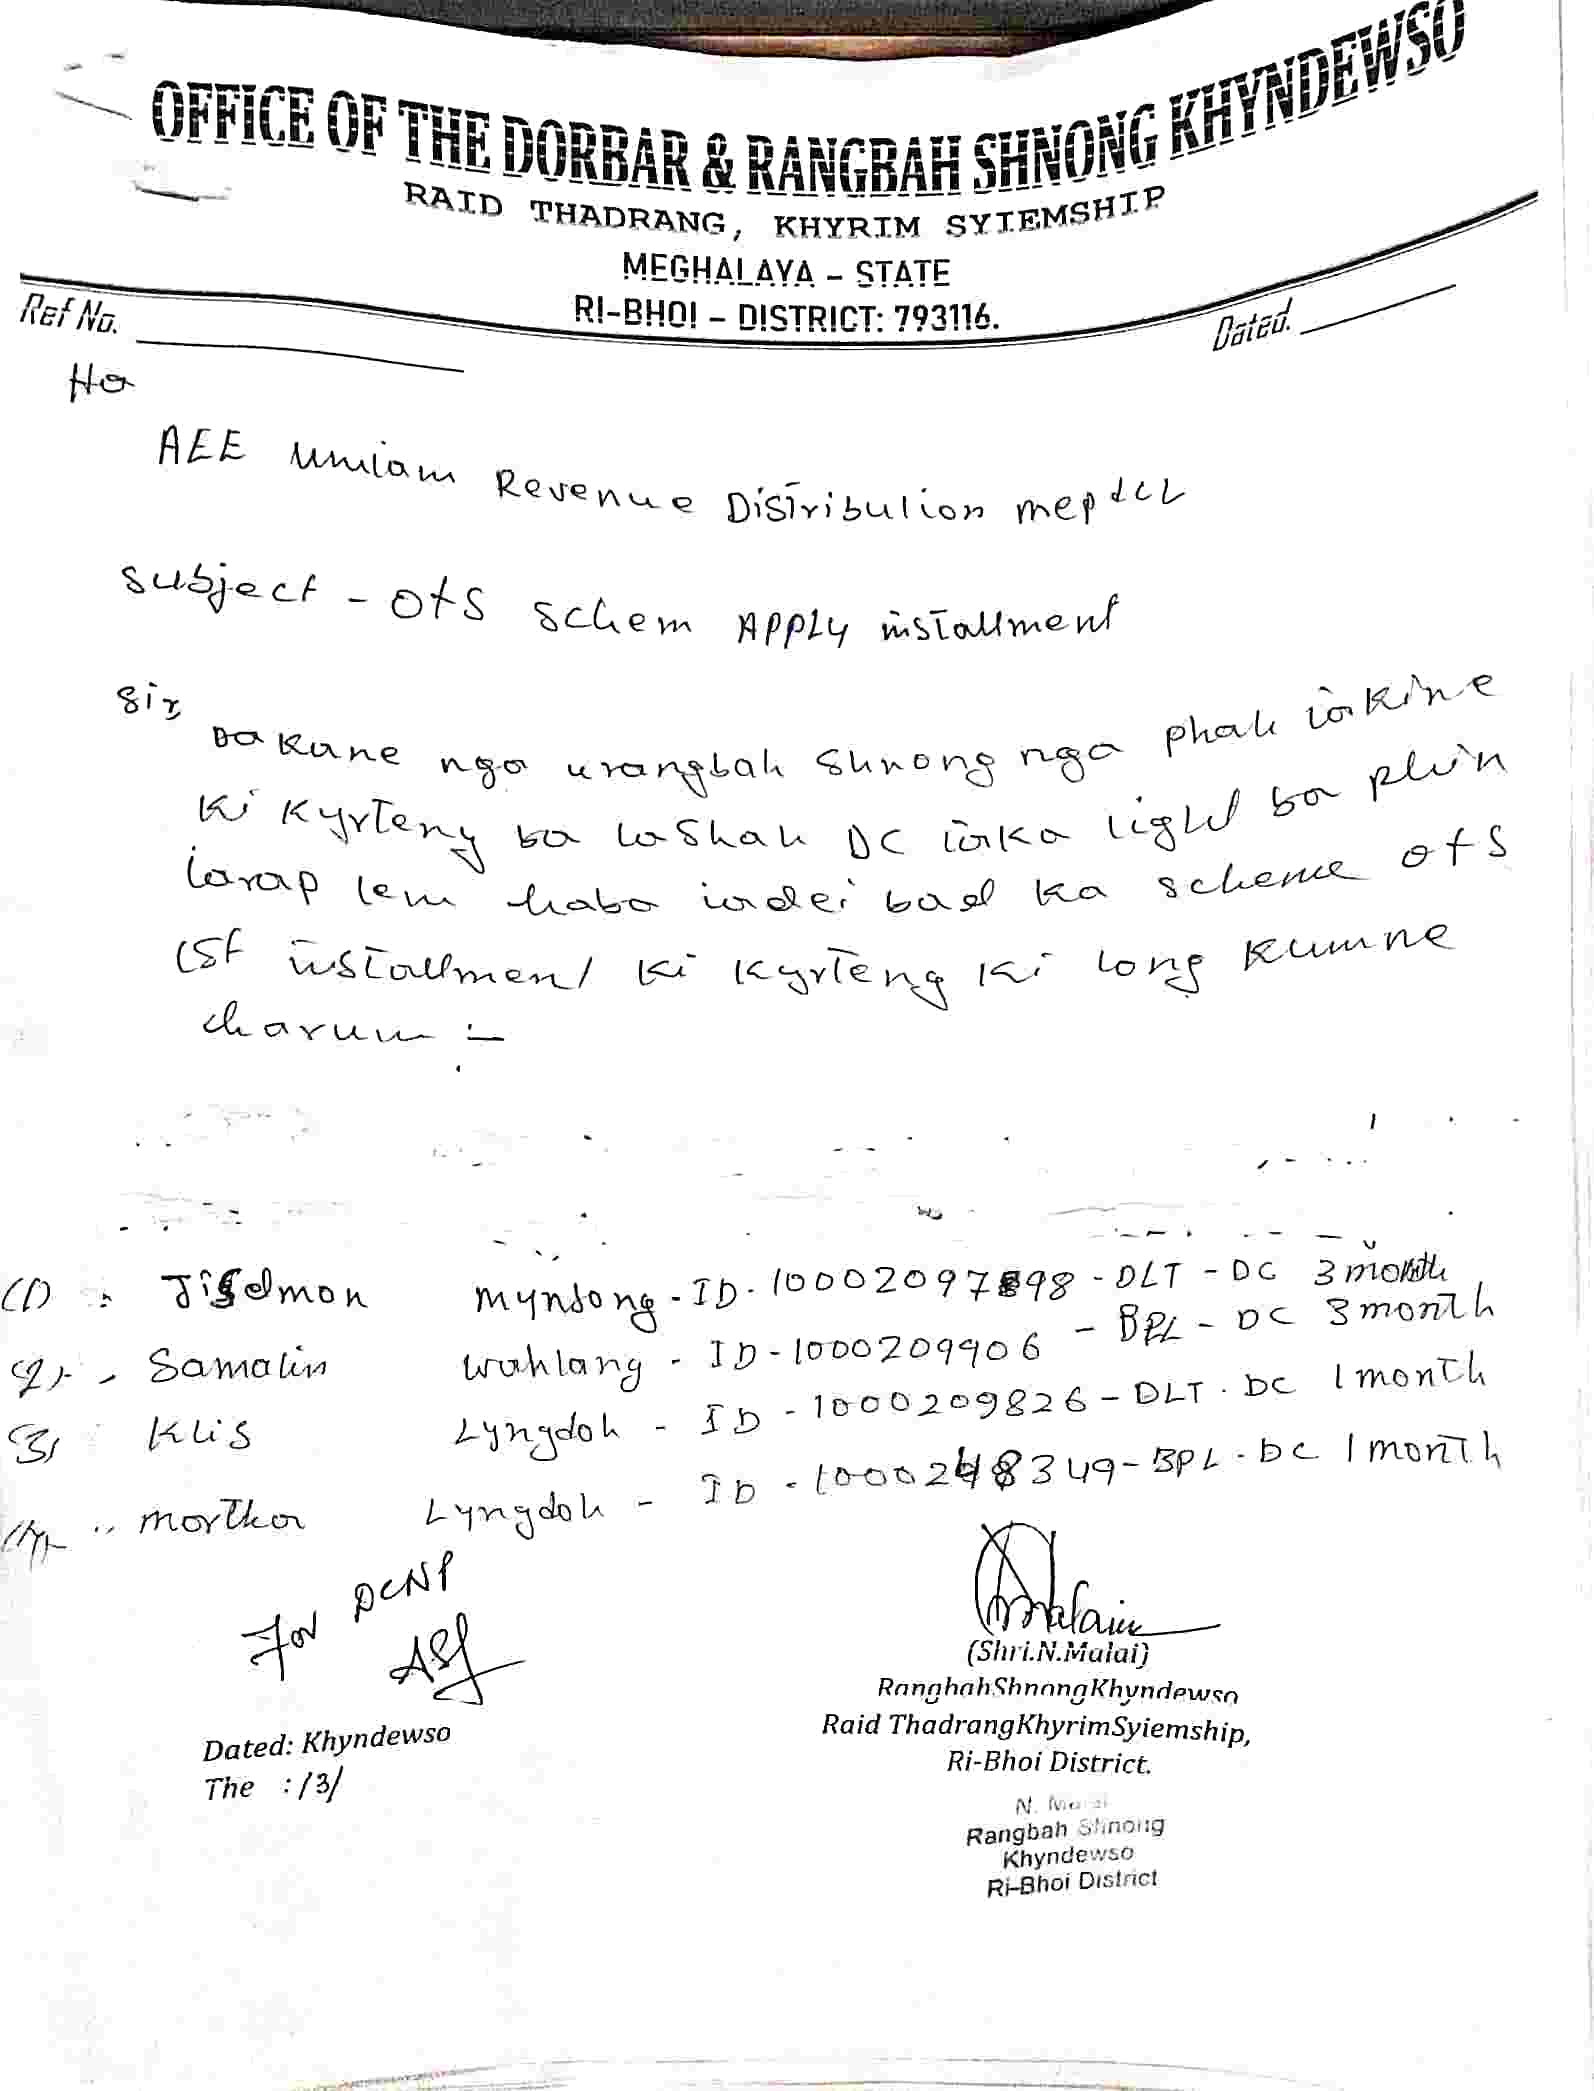 OFFICE OF THE DORBAR & RANGBAH SHNONG KHYNDEWSO
RAID THADRANG, KHYRIM SYIEMSHIP
MEGHALAYA - STATE
RI-BHOI - DISTRICT: 793116.
Ref No.
Dated.
Ha
AEE Umiam Revenue Distribution mepdcl
Subject - OtS Schem APPLy installment
Sir
Da Kane nga urangbah Shnong nga phah ia Kine
Ki Kyrteng ba la Shah DC ia ka light ba phin
iarap lem haba iadei bad Ka scheme OtS
1st installment Ki Kyrteng Ki long Kumne
harum :-
(1) Jiselmon Mynsong - ID - 10002097898 - DLT - DC 3 month
(2) - Samalin Wahlang - ID - 1000209906 - BPL - DC 3 month
(3) Klis Lyngdoh - ID - 1000209826 - DLT - DC 1 month
(4) Martha Lyngdoh - ID - 1000248349 - BPL - DC 1 month
For DCNP
(Shri.N.Malai)
RangbahShnongKhyndewso
Raid ThadrangKhyrimSyiemship,
Ri-Bhoi District.
Dated: Khyndewso
The :/3/
N. Malai
Rangbah Shnong
Khyndewso
Ri-Bhoi District